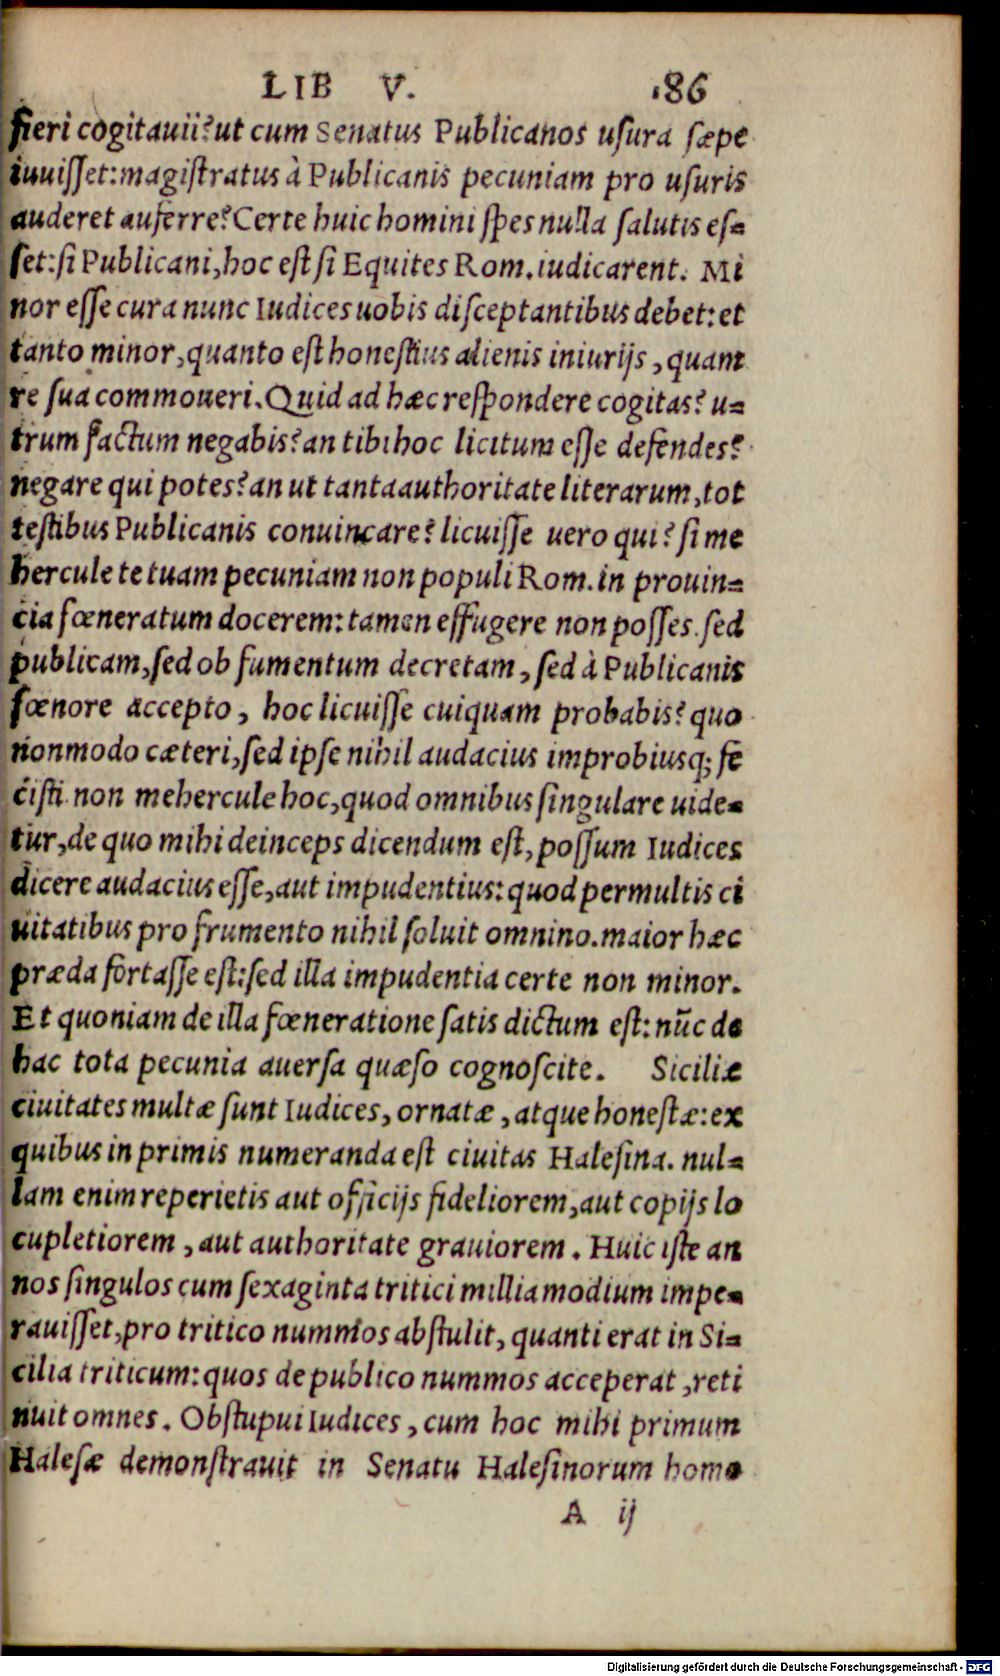 LIB V. 186
fieri cogitauii? ut cum Senatus Publicanos usura sæpe
iuuisset: magistratus à Publicanis pecuniam pro usuris
auderet auferre? Certe huic homini spes nulla salutis es=
set: si Publicani, hoc est si Equites Rom. iudicarent. Mi
nor esse cura nunc Iudices uobis disceptantibus debet: et
tanto minor, quanto est honestius alienis iniurijs, quam
re sua commoueri. Quid ad hæc respondere cogitas? u=
trum factum negabis? an tibi hoc licitum esse defendes?
negare qui potes? an ut tanta authoritate literarum, tot
testibus Publicanis conuincare? licuisse uero qui? si me
hercule te tuam pecuniam non populi Rom. in prouin=
cia fœneratum docerem: tamen effugere non posses. sed
publicam, sed ob fumentum decretam, sed à Publicanis
fœnore accepto, hoc licuisse cuiquam probabis? quo
nonmodo cæteri, sed ipse nihil audacius improbiusq; fe
cisti. non mehercule hoc, quod omnibus singulare uide=
tur, de quo mihi deinceps dicendum est, possum Iudices
dicere audacius esse, aut impudentius: quod permultis ci
uitatibus pro frumento nihil soluit omnino. maior hæc
præda fortasse est: sed illa impudentia certe non minor.
Et quoniam de illa fœneratione satis dictum est: nūc de
hac tota pecunia auersa quæso cognoscite. Siciliæ
ciuitates multæ sunt Iudices, ornatæ, atque honestæ: ex
quibus in primis numeranda est ciuitas Halesina. nul=
lam enim reperietis aut officijs fideliorem, aut copijs lo
cupletiorem, aut authoritate grauiorem. Huic iste an
nos singulos cum sexaginta tritici millia modium impe=
rauisset, pro tritico nummos abstulit, quanti erat in Si=
cilia triticum: quos de publico nummos acceperat, reti
nuit omnes. Obstupui Iudices, cum hoc mihi primum
Halesæ demonstrauit in Senatu Halesinorum homo
A ij
Digitalisierung gefördert durch die Deutsche Forschungsgemeinschaft - DFG